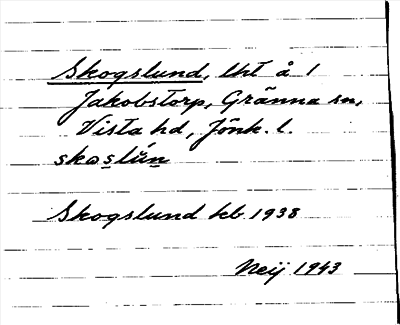 Skogslund, lht å 1
Jakobstorp, Gränna sn,
Vista hd, Jönk. l.
skoslún
Skogslund kb 1938
Neij 1943